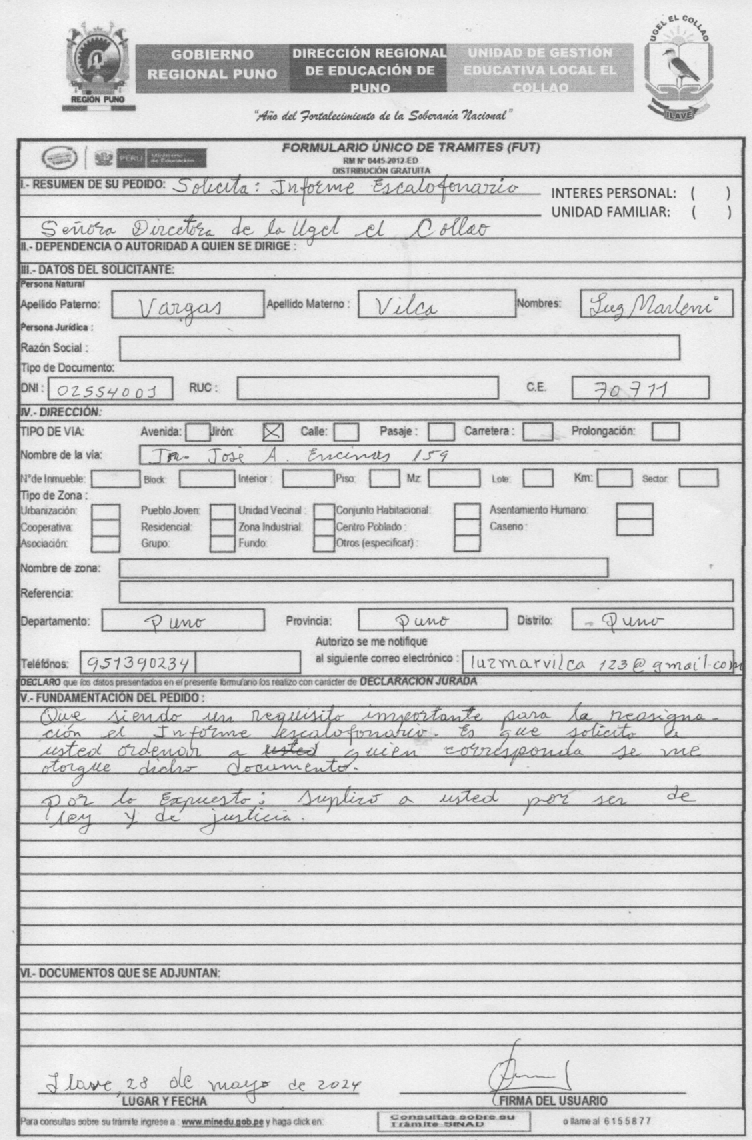 GOBIERNO REGIONAL PUNO
DIRECCIÓN REGIONAL DE EDUCACIÓN DE PUNO
UNIDAD DE GESTIÓN EDUCATIVA LOCAL EL COLLAO
REGION PUNO
UGEL EL COLLAO
ILAVE
"Año del Fortalecimiento de la Soberanía Nacional"
PERÚ
FORMULARIO ÚNICO DE TRAMITES (FUT)
RM Nº 0445-2012-ED
DISTRIBUCIÓN GRATUITA
I.- RESUMEN DE SU PEDIDO: Solicita: Informe Escalofonario
INTERES PERSONAL: ( )
UNIDAD FAMILIAR: ( )
Señora Directora de la Ugel el Collao
II.- DEPENDENCIA O AUTORIDAD A QUIEN SE DIRIGE :
III.- DATOS DEL SOLICITANTE:
Persona Natural
Apellido Paterno: Vargas Apellido Materno : Vilca Nombres: Luz Marleni
Persona Jurídica :
Razón Social :
Tipo de Documento:
DNI : 02554003 RUC : C.E. 70711
IV.- DIRECCIÓN:
TIPO DE VIA: Avenida: Jirón: X Calle: Pasaje : Carretera : Prolongación:
Nombre de la via: Jr. José A. Encinas 159
N°de Inmueble: Block: Interior : Piso: Mz: Lote: Km: Sector:
Tipo de Zona :
Urbanización: Pueblo Joven: Unidad Vecinal : Conjunto Habitacional: Asentamiento Humano:
Cooperativa: Residencial: Zona Industrial: Centro Poblado : Caserio :
Asociación: Grupo: Fundo: Otros (especificar) :
Nombre de zona:
Referencia:
Departamento: Puno Provincia: Puno Distrito: - Puno
Autorizo se me notifique
Teléfonos: 951390234 al siguiente correo electrónico : luzmarvilca 123@gmail.com
DECLARO que los datos presentados en el presente formulario los realizo con carácter de DECLARACION JURADA
V.- FUNDAMENTACIÓN DEL PEDIDO :
Que siendo un requisito importante para la reasigna-
ción el Informe escalofonario. Es que solicito a
usted ordenar a usted quien corresponda se me
otorgue dicho documento.
Por lo Expuesto: Suplico a usted por ser de
ley y de justicia.
VI.- DOCUMENTOS QUE SE ADJUNTAN:
Ilave, 28 de mayo de 2024
LUGAR Y FECHA
FIRMA DEL USUARIO
Para consultas sobre su trámite ingrese a : www.minedu.gob.pe y haga click en: Consultas sobre su Trámite SINAD o llame al 6155877